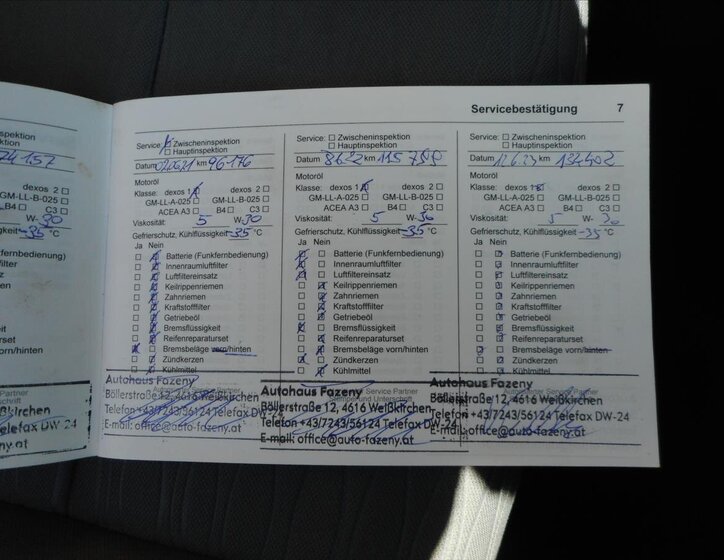 Servicebestätigung 7
spektion
ktion
74157
dexos 2 □
GM-LL-B-025 □
C3 □
W- 30
igkeit -35 °C
Service: □ Zwischeninspektion
□ Hauptinspektion
Datum 020621 km 96176
Motoröl
Klasse: dexos 1 □ dexos 2 □
GM-LL-A-025 □ GM-LL-B-025 □
ACEA A3 □ B4 □ C3 □
Viskosität: 5 W- 30
Gefrierschutz, Kühlflüssigkeit -35 °C
Ja Nein
□ □ Batterie (Funkfernbedienung)
□ □ Innenraumluftfilter
□ □ Luftfiltereinsatz
□ □ Keilrippenriemen
□ □ Zahnriemen
□ □ Kraftstofffilter
□ □ Getriebeöl
□ □ Bremsflüssigkeit
□ □ Reifenreparaturset
□ □ Bremsbeläge vorn/hinten
□ □ Zündkerzen
□ □ Kühlmittel
Autohaus Fazeny
Böllerstraße 12, 4616 Weißkirchen
Telefon +43/7243/56124 Telefax DW-24
E-mail: office@auto-fazeny.at
Service: □ Zwischeninspektion
□ Hauptinspektion
Datum 8.6.22 km 115
Motoröl
Klasse: dexos 1 □ dexos 2 □
GM-LL-A-025 □ GM-LL-B-025 □
ACEA A3 □ B4 □ C3 □
Viskosität: 5 W- 30
Gefrierschutz, Kühlflüssigkeit -35 °C
Ja Nein
□ □ Batterie (Funkfernbedienung)
□ □ Innenraumluftfilter
□ □ Luftfiltereinsatz
□ □ Keilrippenriemen
□ □ Zahnriemen
□ □ Kraftstofffilter
□ □ Getriebeöl
□ □ Bremsflüssigkeit
□ □ Reifenreparaturset
□ □ Bremsbeläge vorn/hinten
□ □ Zündkerzen
□ □ Kühlmittel
Service Partner
Autohaus Fazeny
Böllerstraße 12, 4616 Weißkirchen
Telefon +43/7243/56124 Telefax DW-24
E-mail: office@auto-fazeny.at
Service: □ Zwischeninspektion
□ Hauptinspektion
Datum 12.6.23 km 132402
Motoröl
Klasse: dexos 1 □ dexos 2 □
GM-LL-A-025 □ GM-LL-B-025 □
ACEA A3 □ B4 □ C3 □
Viskosität: 5 W- 30
Gefrierschutz, Kühlflüssigkeit -35 °C
Ja Nein
□ □ Batterie (Funkfernbedienung)
□ □ Innenraumluftfilter
□ □ Luftfiltereinsatz
□ □ Keilrippenriemen
□ □ Zahnriemen
□ □ Kraftstofffilter
□ □ Getriebeöl
□ □ Bremsflüssigkeit
□ □ Reifenreparaturset
□ □ Bremsbeläge vorn/hinten
□ □ Zündkerzen
□ □ Kühlmittel
Autohaus Fazeny
Böllerstraße 12, 4616 Weißkirchen
Telefon +43/7243/56124 Telefax DW-24
E-mail: office@auto-fazeny.at